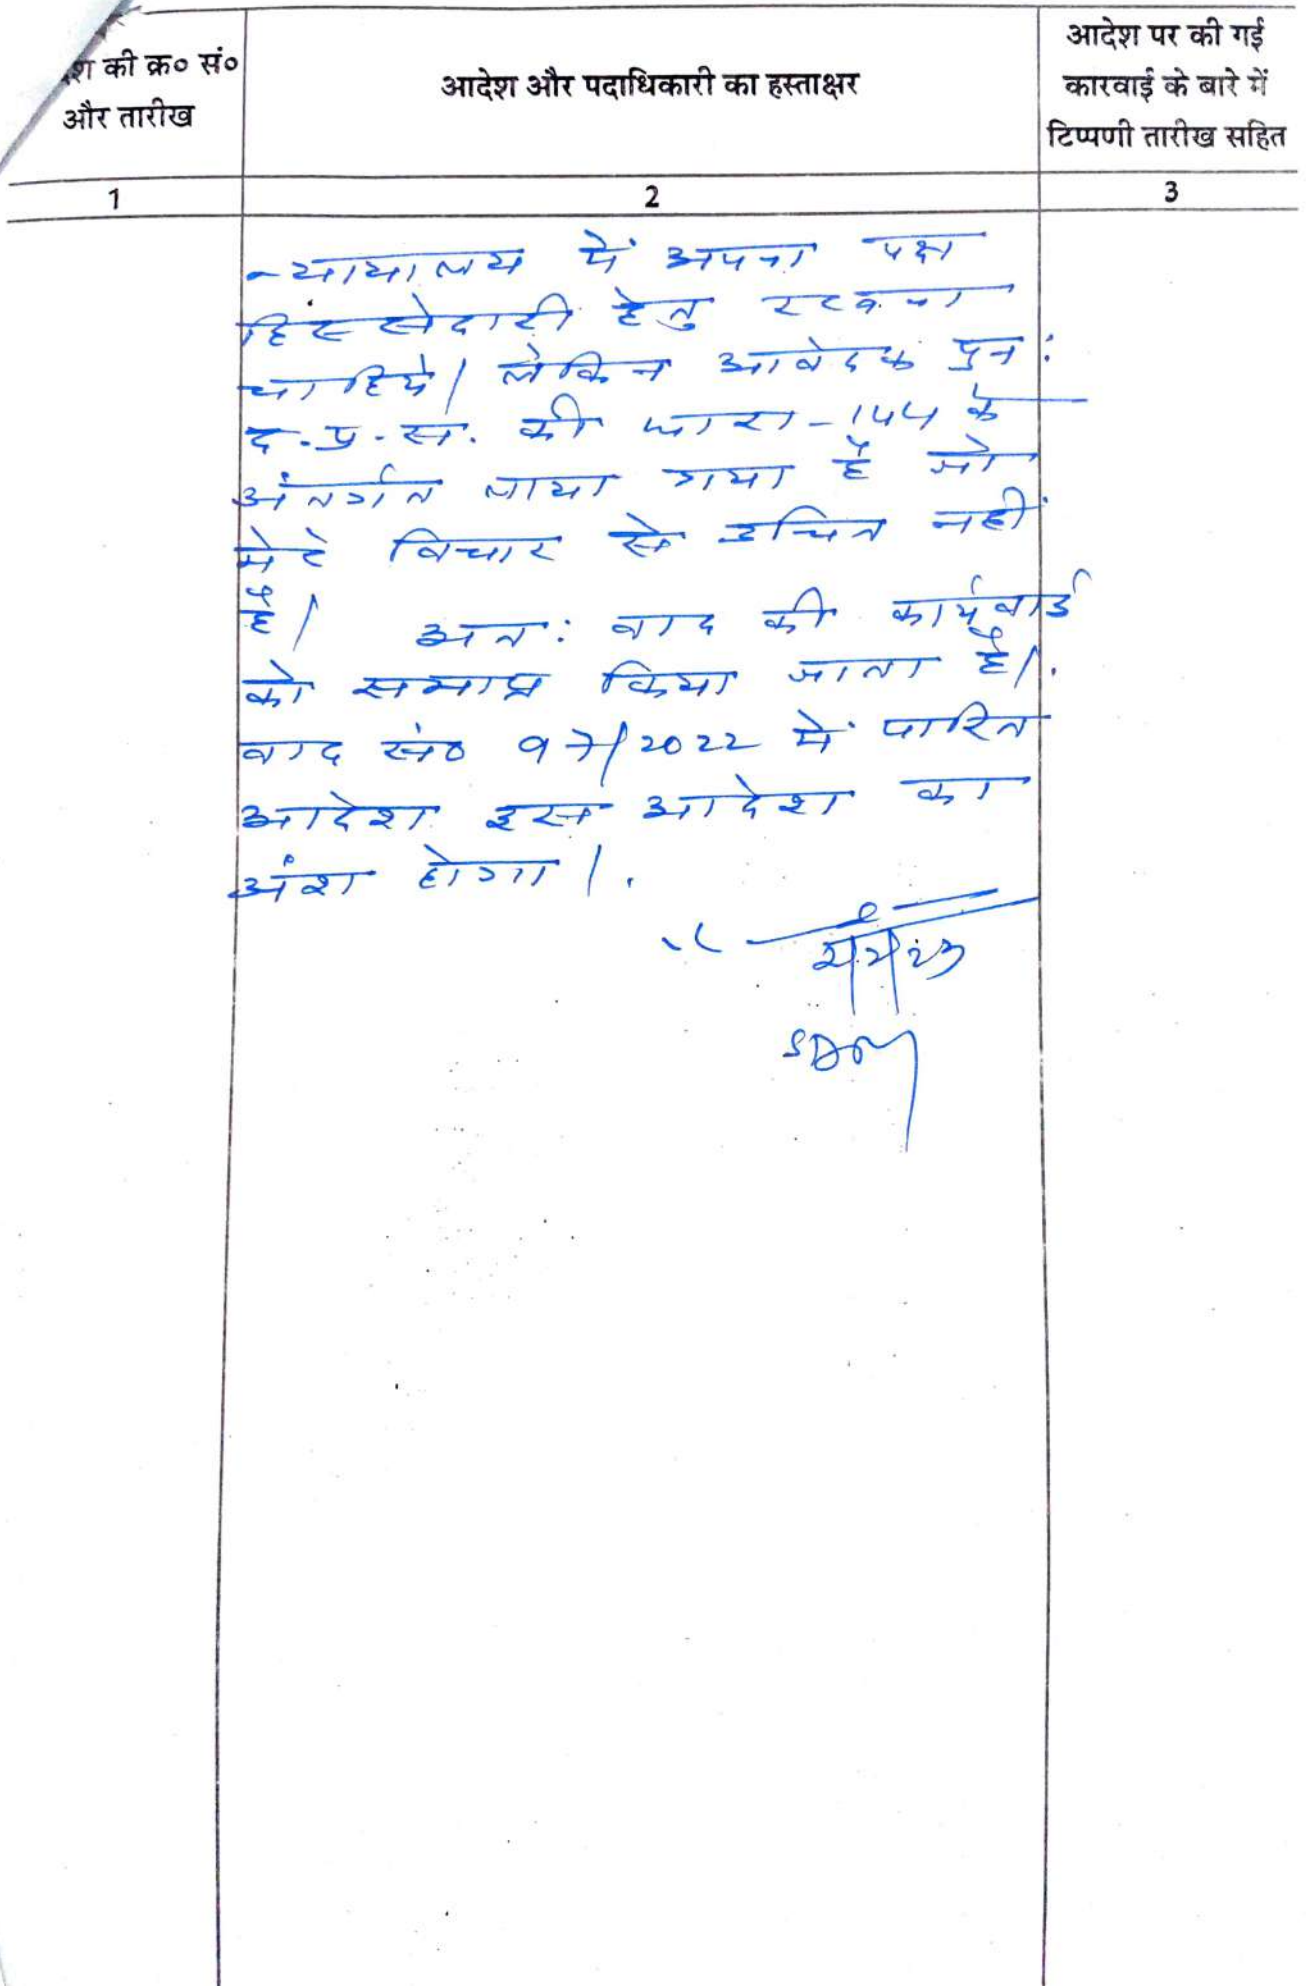 श की क्र० सं०
और तारीख
आदेश और पदाधिकारी का हस्ताक्षर
आदेश पर की गई
कारवाई के बारे में
टिप्पणी तारीख सहित
1 2 3
न्यायालय में अपना पक्ष
हिस्सेदारी हेतु रखना
चाहिये। लेकिन आवेदक पुन:
द.प्र.स. की धारा-144 के
अंतर्गत लाया गया है जो
मेरे विचार से उचित नही
है।
अत: वाद की कार्यवाई
को समाप्त किया जाता है।
वाद सं० 97/2022 में पारित
आदेश इस आदेश का
अंश होगा।
SDM